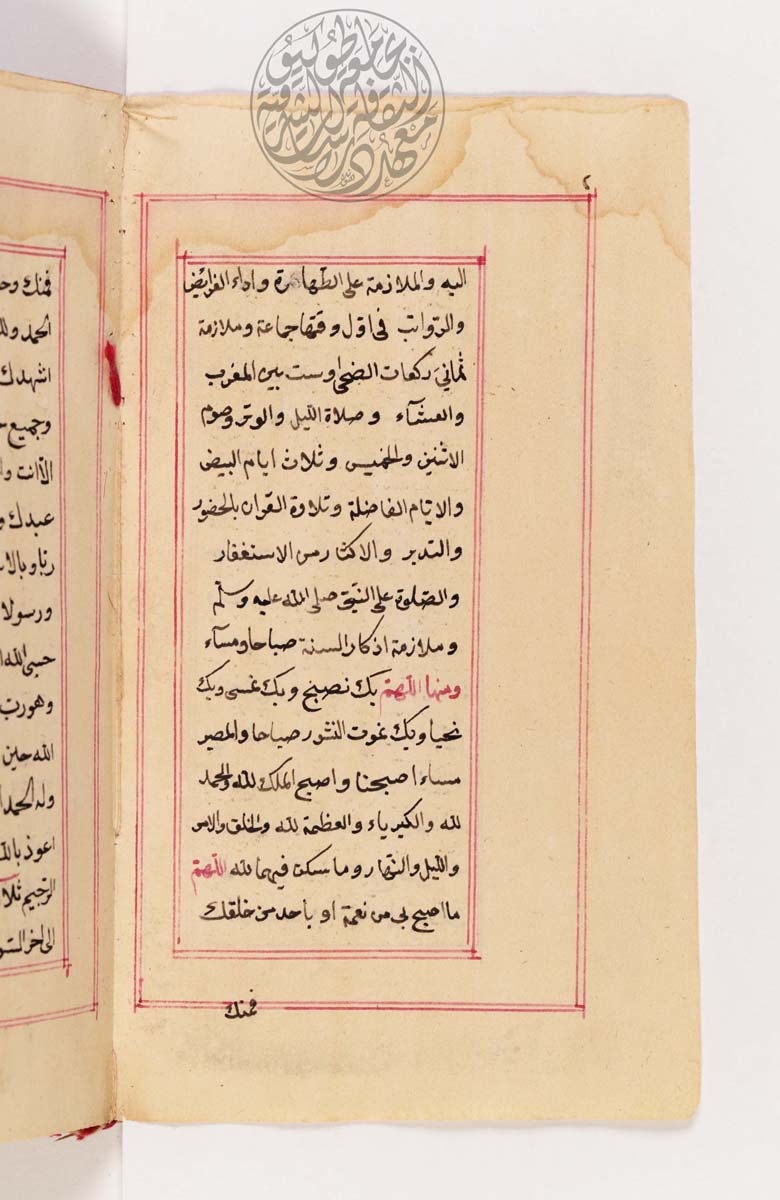 ٤
اليه والملازمة على الطهارة واداء الفرايض
والرواتب فى اول وقتها جماعة وملازمة
ثمانيَ ركعات الضحى وست بين المغرب
والعشآء وصلاة الليل والوتر وصوم
الاثنين والخميس وثلاث ايام البيض
والايام الفاضلة وتلاوة القران بالحضور
والتدبر والاكثار من الاستغفار
والصلوة على النبي صلى الله عليه وسلم
وملازمة اذكار السنة صباحا ومسآء
ومنها اللهم بك نصبح وبك نمسى وبك
نحيا وبك نموت النشور صباحا والمصير
مساء اصبحنا واصبح الملك لله والحمد
لله والكبرياء والعظمة لله والخلق والامر
والليل والنهار وما سكن فيهما لله اللهم
ما اصبح بى من نعمة او باحد من خلقك
فمنك
فمنك
اشهدك
وجميع
عبدك
ورسولا
حسبى الله
الله حين
وله الحمد
اعوذ
الرجيم
الى اخر
معهد دراسات الثقافة الشرقية
جامعة طوكيو